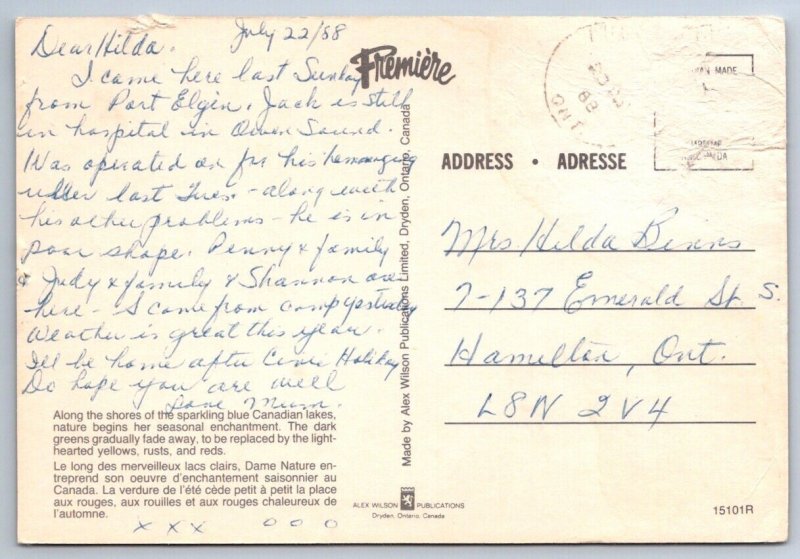 Dear Hilda. July 22/88
I came here last Sunday
from Port Elgin. Jack is still
in hospital in Owen Sound.
Was operated on for his hemoraging
ulser last Tues. - along with
his other problems - he is in
poor shape. Penny & family
& Judy & family & Shannon are
here - S came from camp yesterday
Weather is great this year.
I'll be home after Civic Holiday
Do hope you are well
Love Mum.
Along the shores of the sparkling blue Canadian lakes,
nature begins her seasonal enchantment. The dark
greens gradually fade away, to be replaced by the light-
hearted yellows, rusts, and reds.
Le long des merveilleux lacs clairs, Dame Nature en-
treprend son oeuvre d'enchantement saisonnier au
Canada. La verdure de l'été cède petit à petit la place
aux rouges, aux rouilles et aux rouges chaleureux de
l'automne.
x x x o o o
Première
Made by Alex Wilson Publications Limited, Dryden, Ontario, Canada
ONT
88
MADE
ADDRESS • ADRESSE
Mrs Hilda Binns
7-137 Emerald St. S.
Hamilton, Ont.
L8N 2V4
ALEX WILSON PUBLICATIONS
Dryden, Ontario, Canada
15101R